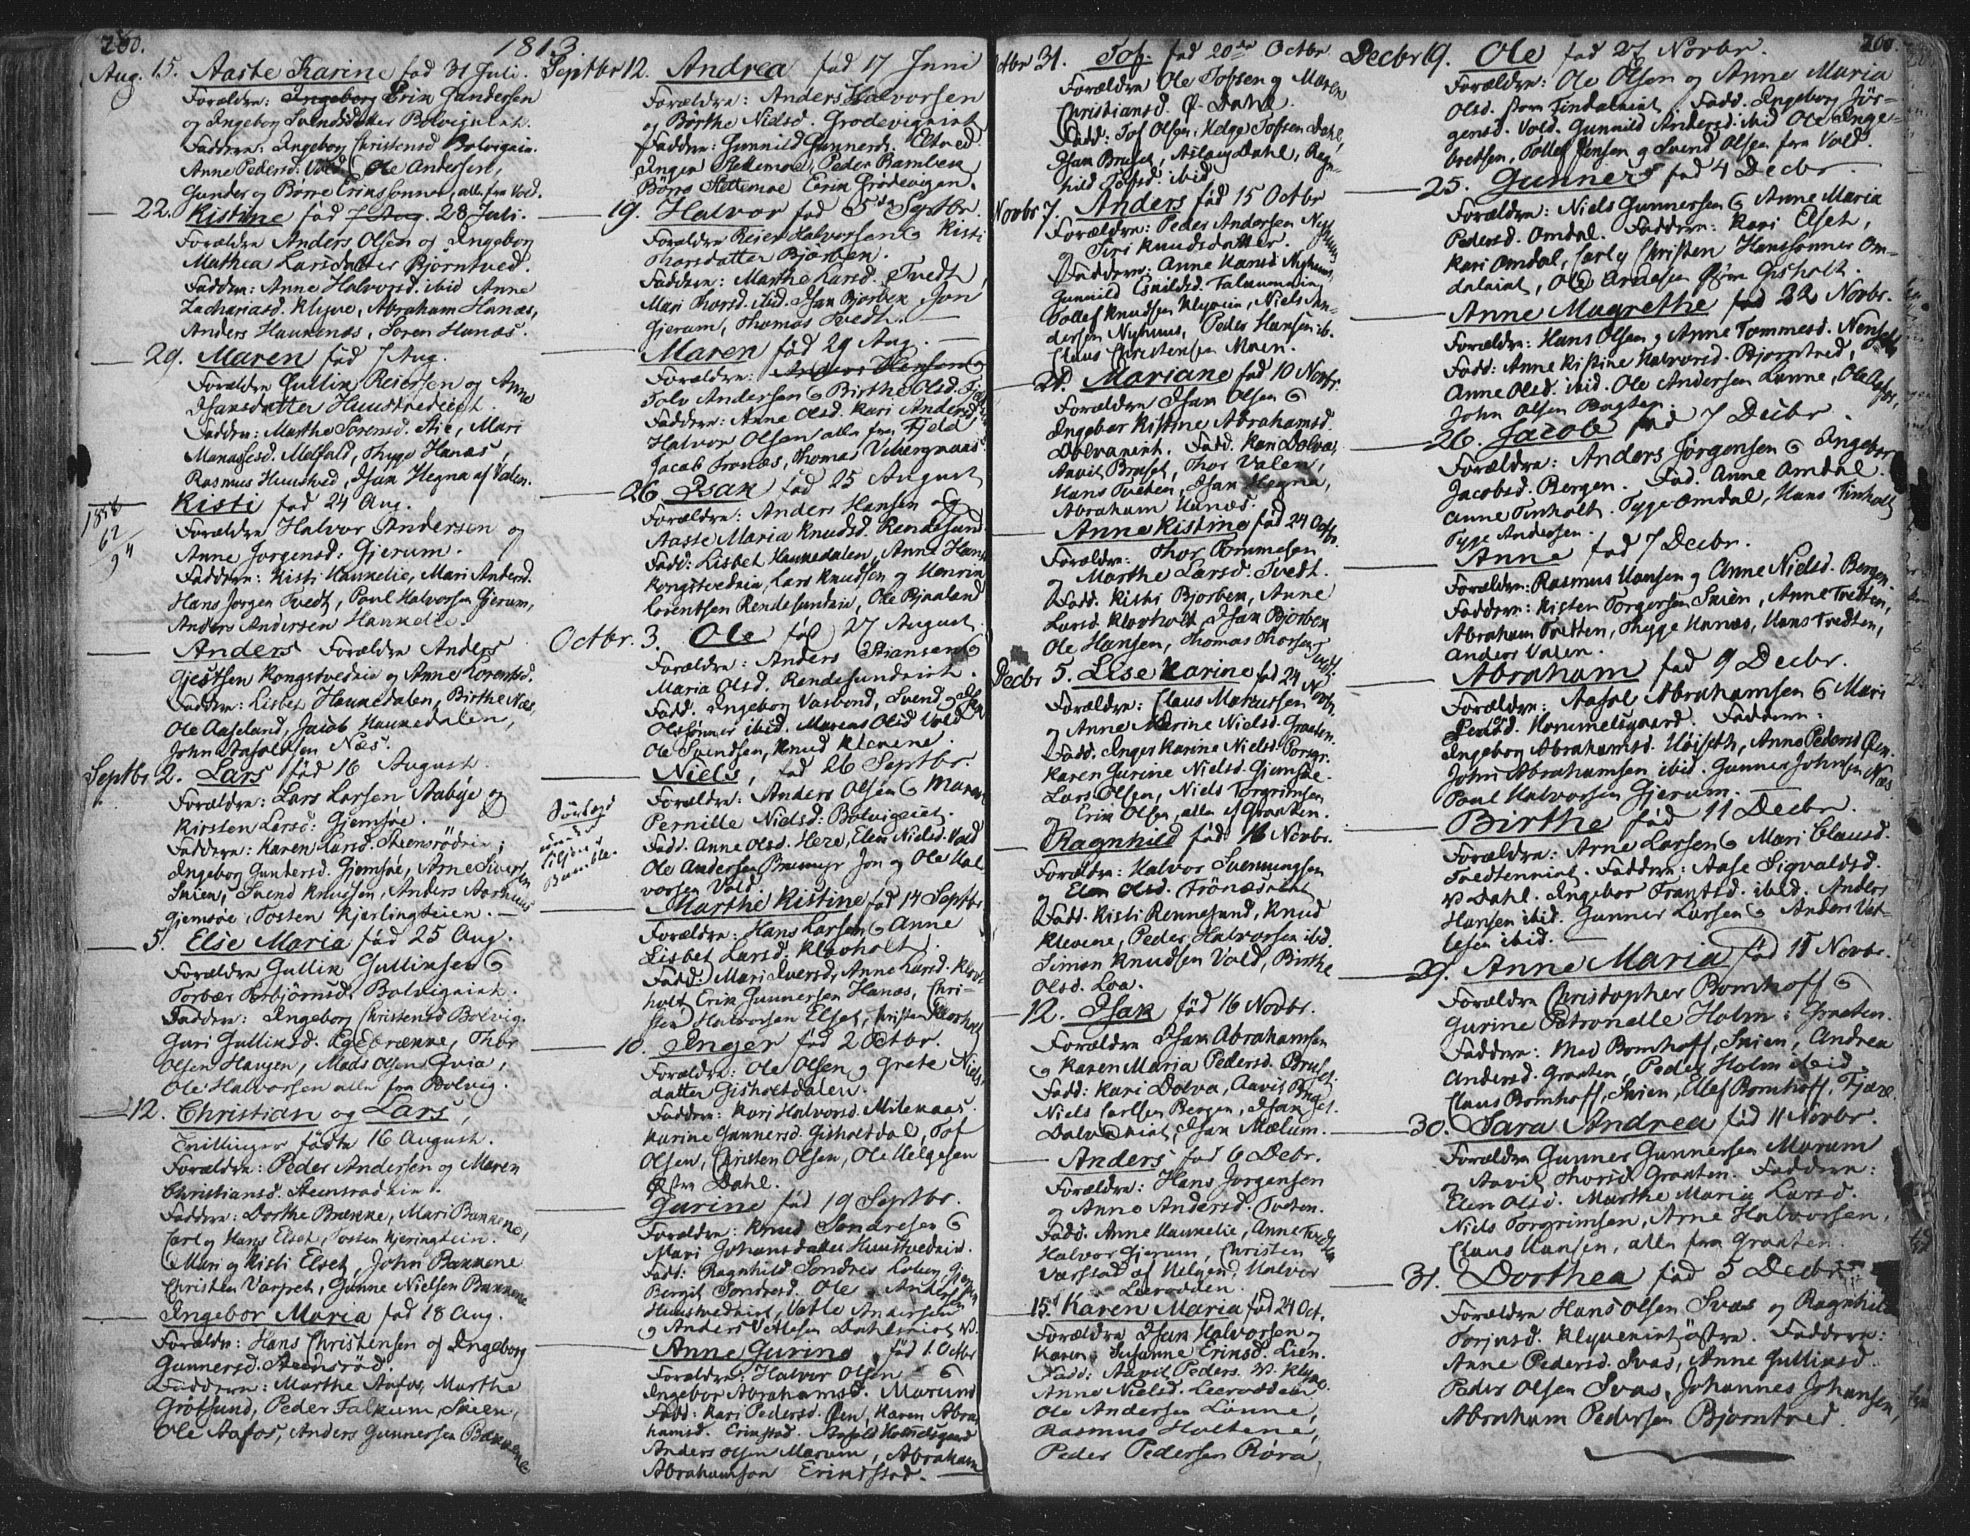 200.
1813.
Aug. 15. Aaste Karine fød 31 Juli.
Forældre: Erik Gundersen
og Ingeborg Svendsdatter Bolvigeiet.
Faddere: Ingeborg Christensd Bolvigeie.
Anne Pedersd: Vold, Ole Andersen,
Gunder og Børre Erikssønner alle fra Vold.
22. Kistine fød 28 Juli.
Forældre Anders Olsen og Ingeborg
Mathea Larsdatter Bjørntved.
Faddere: Anne Halvorsd. ibid Anne
Zachariasd. Klyve, Abraham Hanæs,
Anders Haukenæs, Søren Hanæs.
29. Maren fød 7 Aug.
Forældre Gullik Reiersen og Anne
Isansdatter Huustvedeiet.
Faddere: Marthe Sørensd. Stie, Mari
Manassesd. Melfald, Thyge Hanæs,
Rasmus Huustved, Isak Hegna af Valen.
Kisti fød 24 Aug.
Forældre Halvor Andersen og
Anne Jorgensd: Gjerum.
Faddere: Kisti Haukelie, Mari Andersd.
Hans Jørgen Tvedt, Paul Halvorsen Gjerum,
Anders Andersen Haukelie.
Anders Forældre Anders
Gjestsen Kongstvedeie og Anne Lorentsd.
Faddere: Lisbet Haukedalen, Birthe Næs,
Ole Aaseland, Jacob Haukedalen,
John Aasoldsen Næs.
Septbr 2. Lars fød 16 August.
Forældre: Lars Larsen Aabye og
Kirsten Larsd: Gjemsøe.
Faddere: Karen Larsd. Steensrødeie,
Ingeborg Gundersd. Gjemsøe, Arne Sivertsen
Skien, Svend Knudsen, Anders Aarhuus
Gjemsøe, Tosten Kjerlingteien.
5. Else Maria fød 25 Aug.
Forældre Gullik Gulliksen og
Torbær Torbjørnsd. Bolvigeiet.
Faddere: Ingeborg Christensd Bolvig.
Guri Gulliksd. Egebrænne, Thor
Olsen Haugen, Mads Olsen Qvia,
Ole Halvorsen alle fra Bolvig.
12. Christian og Lars,
Tvillinger fødte 16 August.
Forældre: Peder Andersen og Maren
Christiansd. Steensrødeie.
Faddere: Dorthe Brække, Mari Bakkene,
Carl og Hans Elset, Tosten Kjeringteien.
Mari og Kisti Elset, John Bakkene
Christen Værpet, Gunne Nielsen Bakkene
Ingebor Maria fød 18 Aug.
Forældr: Hans Christensen og Ingeborg
Gunnersd. Steensrød.
Faddere: Marthe Aafos, Marthe
Grøtsund, Peder Falkum, Skien,
Ole Aafos, Anders Gunnersen Bakkene
Septbr 12. Andrea fød 17 Juni
Forældre: Anders Halvorsen
og Børthe Nielsd. Grodevigeiet
Faddere: Gunnild Gunnersd. Eltved
Inger Slettemoe, Peder Bamben
Børre Slettemoe Erik Grødevigen.
19. Halvor fød 5te Septbr.
Forældre Reier Halvorsen og Kisti
Thorsdatter Bjorben.
Faddere: Marthe Larsd. Tvedt,
Mari Thorsd. ibid. Isak Bjorben Jon
Gjerum, Thomas Tvedt.
Maren fød 29 Aug.
Forældre:
Tolv Andersen og Birthe Olsd. Fjeld
Faddere: Anne Olsd. Kari Andersd.
Halvor Olsen alle fra Fjeld
Jacob Tronæs, Thomas Vibergnaas.
26 Isak fød 25 August
Forældre: Anders Hansen og
Aaste Maria Knudsd. Rendesund.
Fadd: Lisbet Haukedalen, Anne Hans
Kongstvedeie, Lars Knudsen og Henrik
Lorentsen Rendesundeie, Ole Bjaaland
Octbr. 3. Ole fød 27 August.
Forældre: Anders Stiansen og
Maria Olsd. Rendesundeiet.
Fadd. Ingeborg Vasbond, Svend og
Olssønner ibid. Maren Olsd Vold
Ole Svendsen, Knud Klevene.
Niels, fød 26 Septbr.
Forældre: Anders Olsen og Maren
Pernille Nielsd: Bolvigeiet.
Fadd: Anne Olsd. Here, Elen Nielsd. Vold
Ole Andersen Jon og Ole Hal
vorsen Vold.
Marthe Kistine fød 14 Septbr
Forældre: Hans Larsen og Anne
Lisbet Larsd: Klovholt.
Fadd: Mari Iversd, Anne Larsd. Klov
holt Erik Gunnersen Hanæs, Chri-
sten Halvorsen Elset, Christen Klovholt
10. Inger fød 2 Octbr.
Forældre: Ole Olsen og Grete Niels
datter Gisholtdalen.
Faddere: Kari Halvorsd. Milekaas.
Karine Gunnersd. Gisholtdal, Tof
Olsen, Christen Olsen, Ole Helgesen
Østre Dahl.
Gurine fød 19 Septbr.
Forældre: Knud Sondresen og
Mari Johansdatter Huustvedeie.
Fadd: Ragnhild Sondres
Bergit Sondresd. Ole Anders
Huustvedeiet, Vetle Andersen
og Anders Vetlesen Dahlseiet V.
Anne Gurine fød 1. Octbr
Forældre: Halvor Olsen og
Ingebor Abrahamsd. Marum
Fadd: Kari Pedersd. Øen, Karen Abra
hamsd. Erikstad. Aasold Kommelsgaard
Anders Olsen Marum, Abraham
Abrahamsøn Erikstad.
Octbr 31. Tof. fød 20de Octbr
Forældre Ole Tofsen og Maren
Christiansd. Ø. Dahl.
Fadd: Tof Olsen, Helge Tofsen Dahl,
Isak Bruset, Aslaug Dahl, Ragn-
hild Tofsd. ibid
Novbr 7. Anders fød 15 Octbr
Forældre: Peder Andersen Nyhuus
og Siri Knudsdatter.
Faddere: Anne Hansd Nyhuus,
Gunnild Eskildsd. Falkumeie
Tollef Knudsen Klyveie, Niels An-
dersen Nyhuus, Peder Hansen ib.
Claus Christensen Moen.
21. Mariane fød 10 Novbr.
Forældre Isak Olsen og
Ingebor Kistine Abrahamsd.
Dolvaeiet. Fadd. Kari Dolva,
Aavit Bruset, Thor Valen,
Hans Tveten, Isak Hegna,
Abraham Hanæs.
Anne Kistine fød 24 Octbr.
Forældre: Thor Tommesen
og Marthe Larsd. Tvedt.
Fadd. Kisti Bjorben, Anne
Larsd Klovholt, Isak Bjorben
Ole Hansen, Thomas Thorsen Tvedt.
Decbr 5. Lise Karine fød 24 Novbr.
Forældre: Claus Marcussen
og Anne Karine Nielsd. Graaten.
Fadd. Inger Karine Nielsd. Porsgr.
Karen Gurine Nielsd. Gjemsøe.
Lars Olsen, Niels Torgrimsen
og Erik Olsen, alle af Graaten.
Ragnhild født 18 Novbr.
Forældre: Halvor Svenningsen
og Elen Olsd. Frønesdalen
Fadd. Kisti Rennesund, Knud
Klevene, Peder Halvorsen ibid.
Simon Knudsen Vold, Birthe
Olsd. Loa.
12. Isak fød 16 Novbr.
Forældre Isak Abrahamsen
og Karen Maria Pedersd. Bruset.
Fadd: Kari Dolva, Aavit Bruset
Niels Carlsen Bergen, Isak
Dolvaeiet, Isak Mælum.
Anders fød 6 Debr.
Forældre: Hans Jorgensen
og Anne Andersd. Tveten.
Fadd. Anne Haukelie, Anne Tvedt
Halvor Gjerum, Christen
Værstad af Helgen, Halvor
Leerodden.
15. Karen Maria fød 24 Oct.
Forældre Isak Halvorsen og
Karen Susanne Eriksd. Lien.
Fadd: Aavit Peders. V. Klyve
Anne Nielsd. Leerodden
Ole Andersen Lunne,
Rasmus Holtene,
Peder Pedersen Røra.
200.
Decbr 19. Ole fød 27 Novbr.
Forældre: Ole Olsen og Anne Maria
Olsd. store Findaleiet. Fadd. Ingeborg Jør-
gensd. Vold. Gunnild Andersd: ibid Ole Inge-
bretsen, Tollef Jensen og Svend Olsen fra Vold.
25. Gunners fød 4 Decbr.
Forældre: Niels Gunnersen og Anne Maria
Pedersd. Omdal. Faddere: Kari Elset,
Kari Omdal, Carl og Christen Hanssønner Om-
daleiet, Ole Gisholt.
Anne Magrethe fød 22 Novbr.
Forældre: Hans Olsen og Anne Tommesd. Nenset
Fadd: Anne Kistine Halvorsd. Bjorntved,
Anne Olsd. ibid. Ole Andersen Lunne, Ole Aafos,
John Olsen Bagten.
26. Jacob fød 7 Decbr.
Forældre: Anders Jørgensen og Ingebor
Jacobsd. Bergen. Fad. Anne Omdal.
Anne Tinholt. Tyge Omdal, Hans Tinholt
Tyge Andersen.
Anne fød 7 Decbr.
Forældre: Rasmus Hansen og Anne Nielsd. Bergen
Faddere: Kisten Torgersen Skien, Anne Tvedten,
Abraham Tvetten, Thygge Hanæs, Hans Tvedten,
Anders Valen.
Abraham fød 9 Decbr.
Forældre: Aasol Abrahamsen og Mari
Jensd. Kommelsgaard. Faddere:
Ingeborg Abrahamsd. Høiseth, Anne Pedersd Øen.
John Abrahamsen ibid. Gunner Johnsen Næs
Paul Halvorsen Gjerum.
Birthe fød 11 Decbr.
Forældre: Arne Larsen og Mari Clausd.
Tvedteneiet. Faddere: Aase Sigvaldsd.
V. Dahl. Ingebor Frantsd. ibid. Anders
Hansen ibid. Gunner Larsen og Anders Vet-
lesen ibid.
29. Anne Maria fød 15 Novbr.
Forældre Christopher Bomhoff og
Gurine Petronelle Holm: Graaten.
Faddere: Mad Bomhoff, Skien, Andrea
Andersd. Graaten, Peder Holm ibid.
Claus Bomhoff, Skien, Ellef Bomhoff, Fjære
30. Sara Andrea fød 11 Novbr.
Forældre Gunner Gunnersen Marum
og Aavit Thorsd. Graaten. Faddere:
Elen Olsd. Marthe Maria Larsd.
Niels Torgrimsen, Arne Halvorsen,
Claus Hansen, alle fra Graaten.
31. Dorthea fød 5 Decbr
Forældre Hans Olsen Svas og Ragnhild
Torjusd. Klyveeiet østre. Faddere:
Anne Pedersd. Svas, Anne Gulliksd.
Peder Olsen Svas, Johannes Johansen,
Abraham Pedersen Bjorntved.